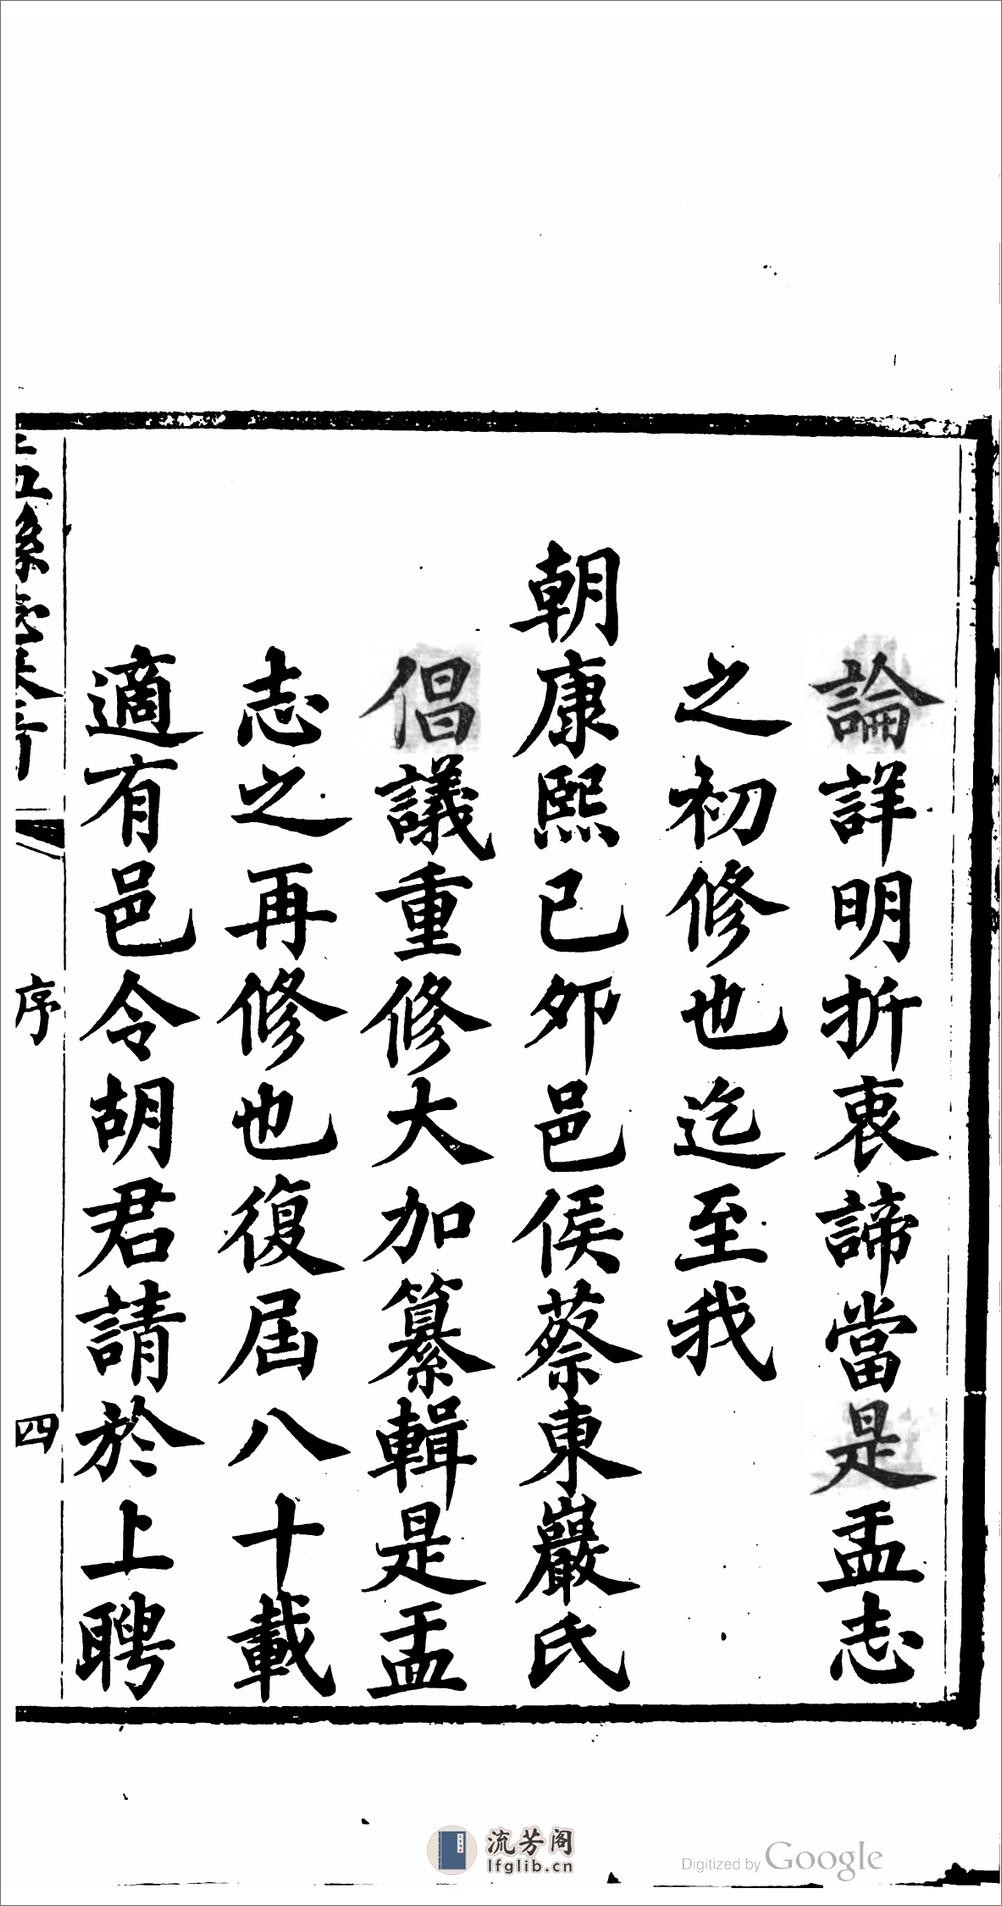 論詳明折衷諦當是盂志
之初修也迄至我
朝康熙己夘邑侯蔡東巖氏
倡議重修大加纂輯是盂
志之再修也復屆八十載
適有邑令胡君請於上聘
序
四
流芳阁
lfglib.cn
Digitized by Google